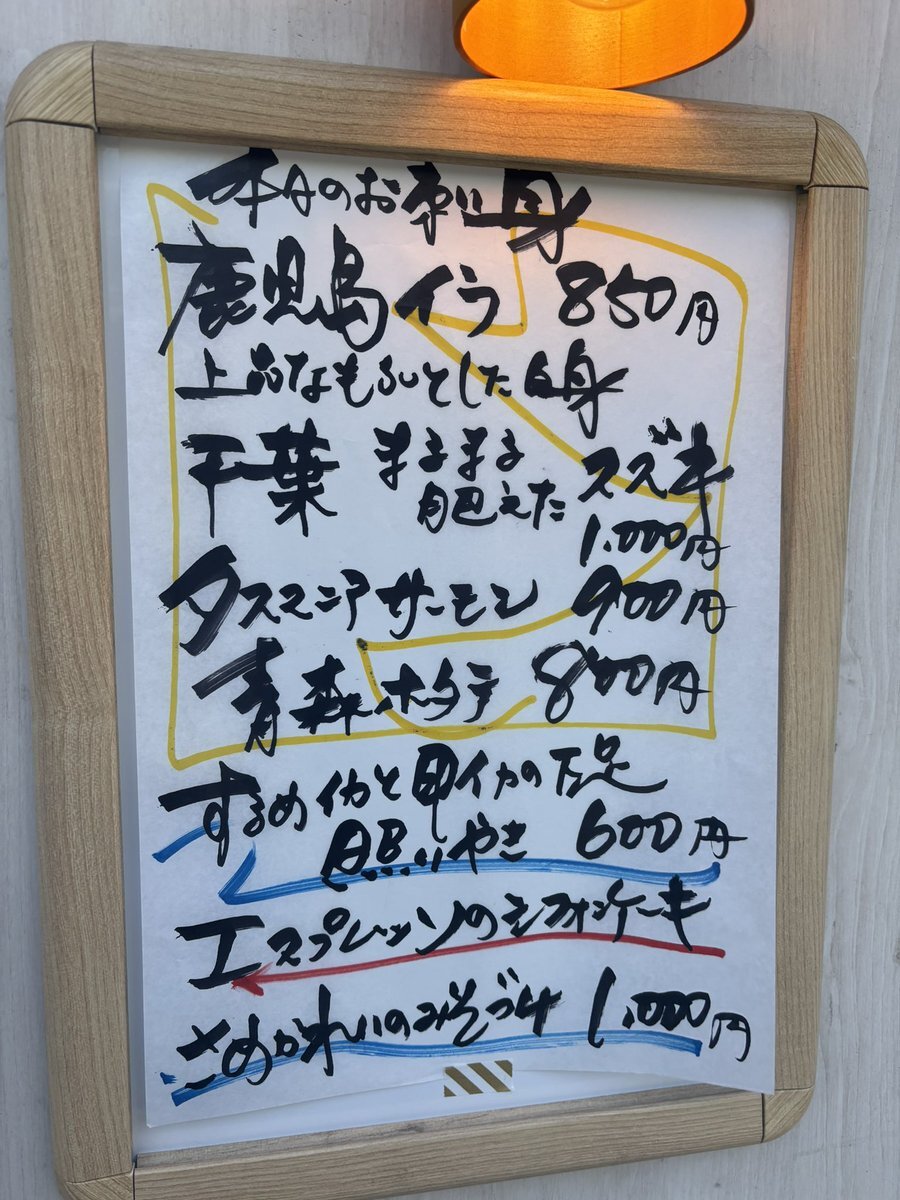 本日のお刺し身
鹿児島 イラ 850円
上品なもちっとした白身
千葉 まるまる肥えた スズキ
1.000円
タスマニアサーモン 900円
青森ホタテ 800円
するめイカと甲イカの下足
照りやき 600円
エスプレッソのシフォンケーキ
さめかれいのみそづけ 1.000円